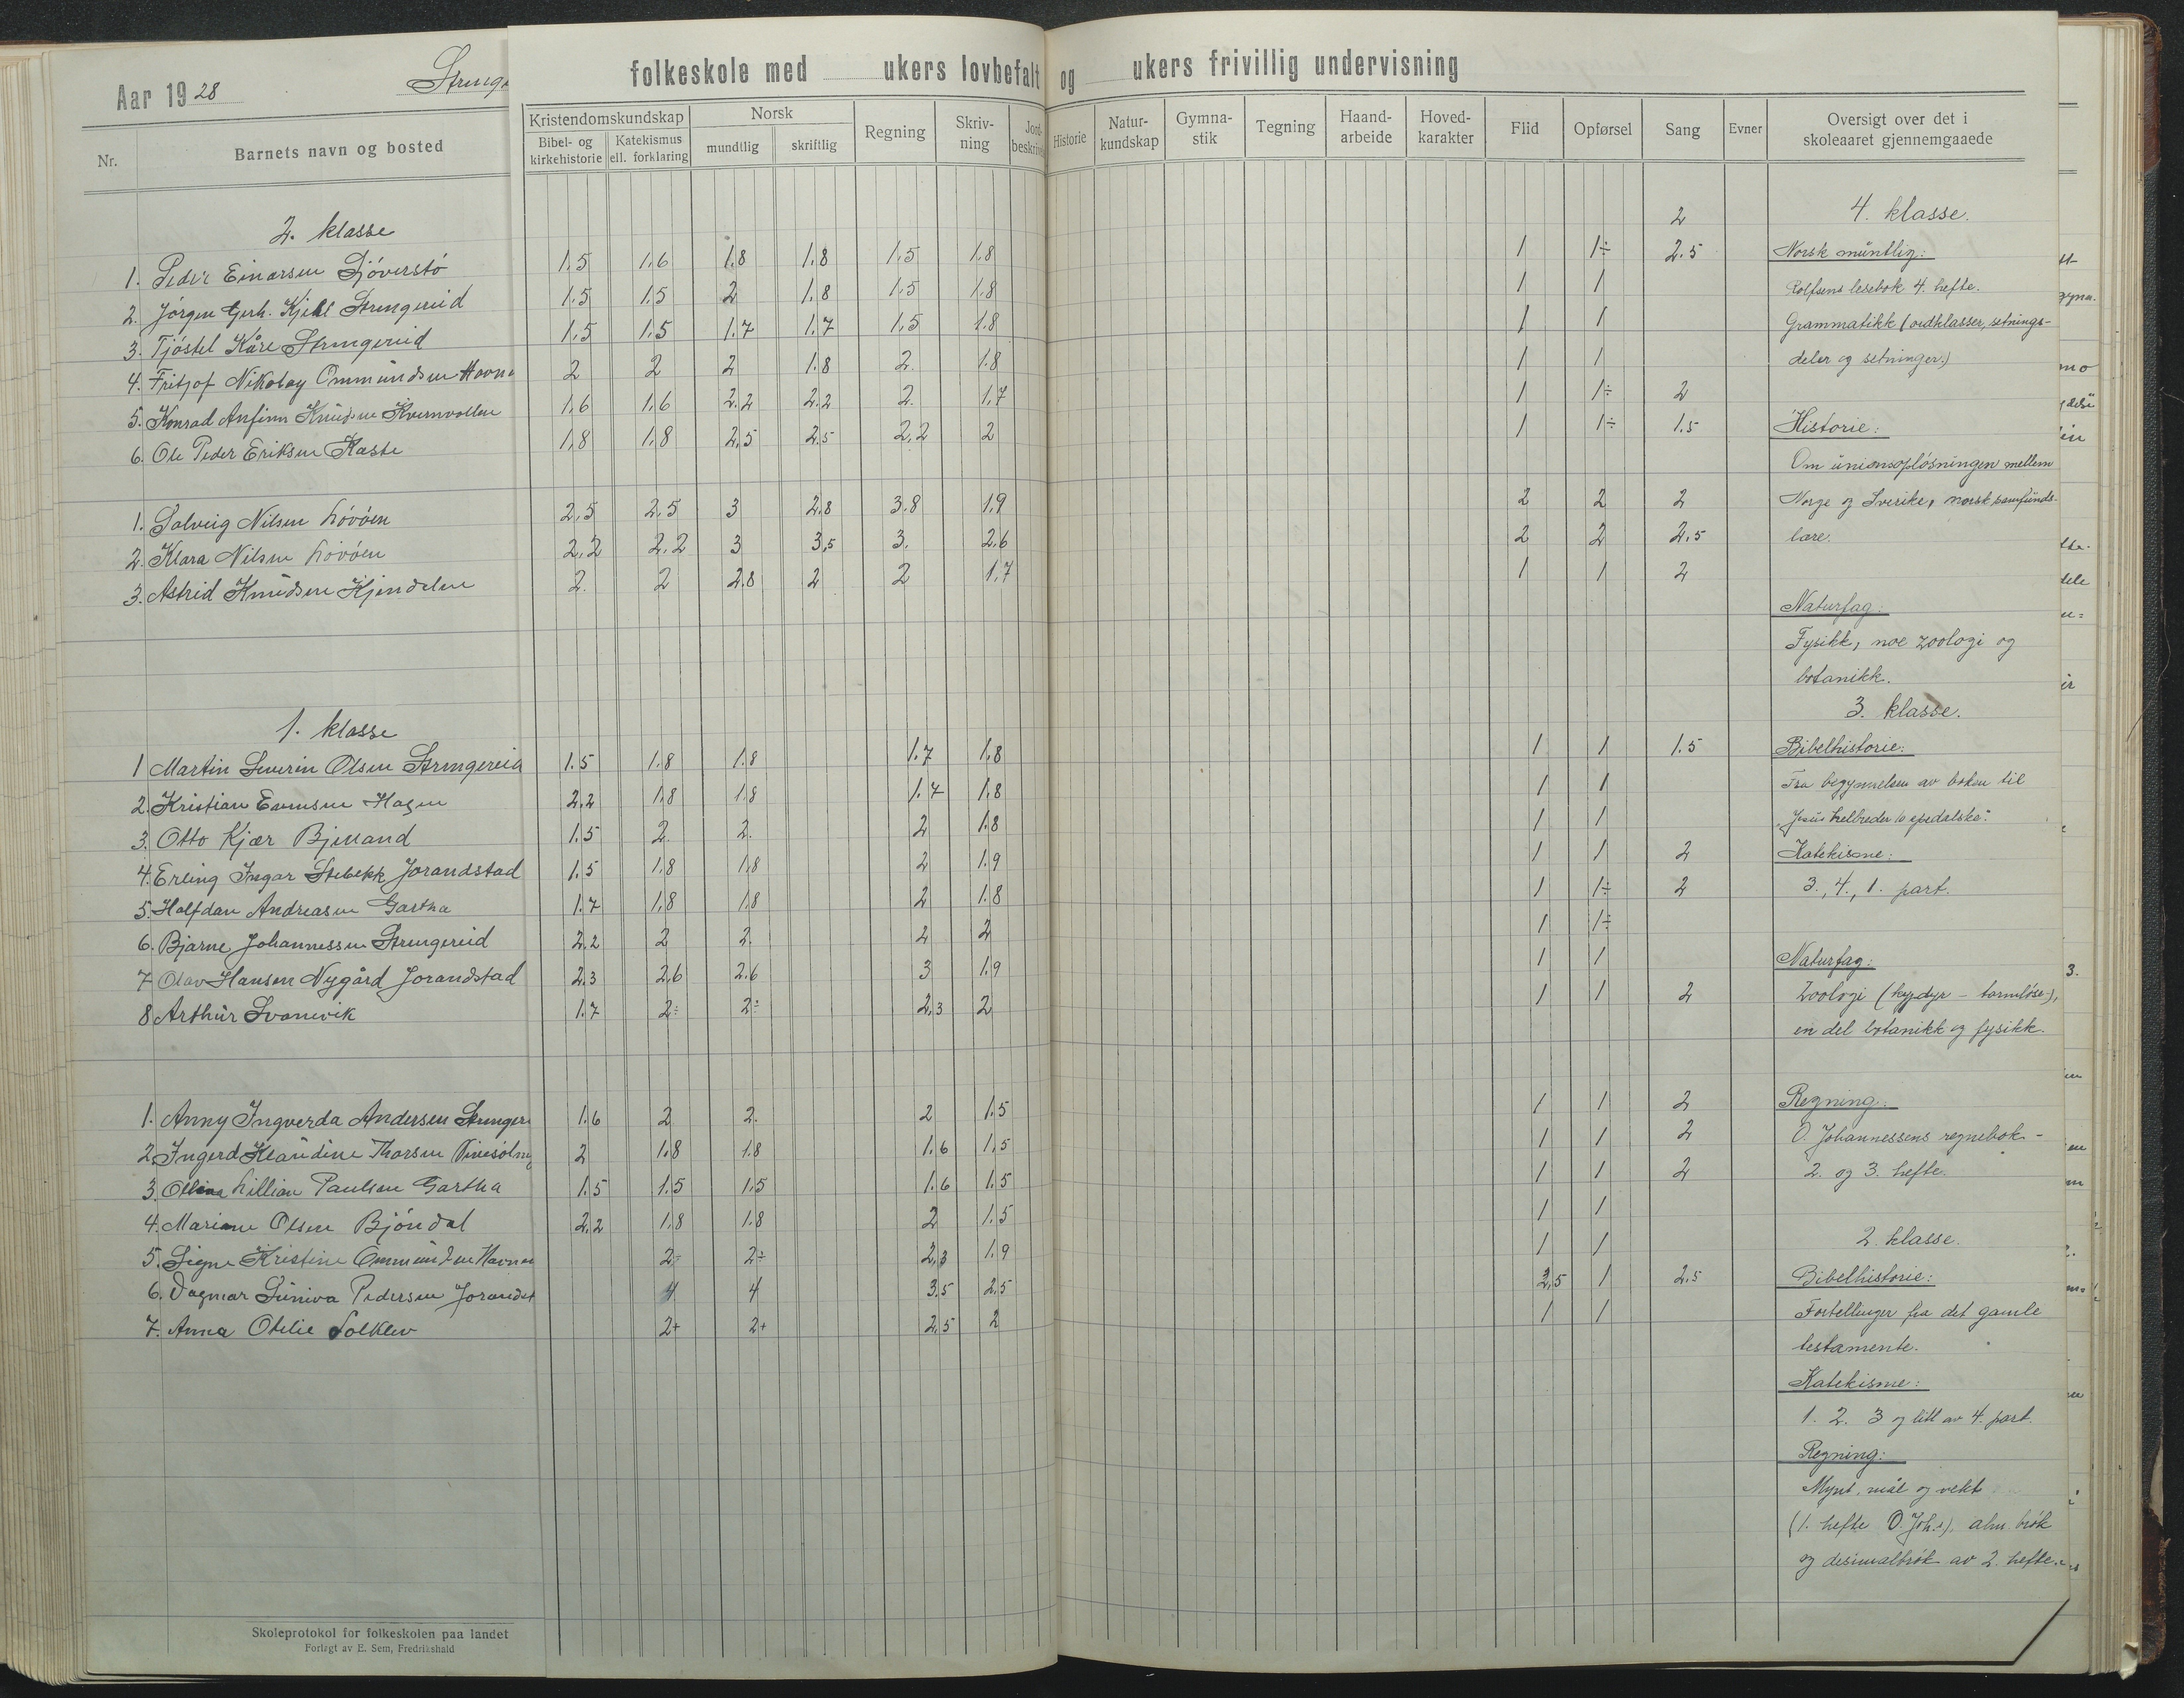 Aar 1928
folkeskole med ukers lovbefalt og ukers frivillig undervisning
Nr. Barnets navn og bosted
Kristendomskundskap Norsk Regning Skriv-ning Historie Natur-kundskap Gymna-stik Tegning Haand-arbeide Hoved-karakter Flid Opførsel Sang Evner Oversigt over det i skoleaaret gjennemgaaede
Bibel- og kirkehistorie Katekismus ell. forklaring mundtlig skriftlig
2. klasse 2
1. Peder Einarsen 1,5 1,6 1,8 1,8 1,5 1,8 1 1÷ 2.5
2. Jörgen Gerh. Kjell Strengereid 1,5 1,5 2 1,8 1,5 1,8 1 1
3. Tjöstel Kåre Strengereid 1,5 1,5 1.7 1.7 1,5 1.8 1 1
4. Fritjof Nikolay Ommundsen 2 2 2 1.8 2. 1.8 1 1
5. Konrad Anfinn Knudsen Kvernvollen 1,6 1,6 2.2 2.2 2. 1,7 1 1÷ 2
6. Ole Peder Eriksen Kaste 1,8 1,8 2,5 2.5 2,2 2 1 1÷ 1.5
1. Solveig Nilsen Lövöen 2,5 2,5 3 2.8 3.8 1,9 2 2 2
2. Klara Nilsen Lövöen 2,2 2.2 3 3,5 3. 2.6 2 2 2.5
3. Astrid Knudsen Kjendalen 2. 2 2.8 2 2 1,7 1 1 2
1. klasse
1 Martin Severin Olsen Strengereid 1.5 1.8 1.8 1.7 1.8 1 1 1.5
2. Kristian Evensen Hagen 2,2 1,8 1,8 1.7 1.8 1 1
3. Otto Kjær Bjelland 1.5 2. 2. 2 1.8 1 1
4. Erling Ingar Stebekk Jorandstad 1.5 1,8 1,8 2 1.9 1 1 2
5. Halfdan Andreasen Gartha 1.7 1,8 1,8 2 1.8 1 1÷ 2
6. Bjarne Johannessen Strengereid 2,2 2 2. 2 2 1 1÷
7 Olav Hansen Nygård Jorandstad 2.3 2,6 2.6 3 1.9 1 1
8 Arthur Svanevik 1.7 2÷ 2÷ 2,3 2 1 1 2
1. Anny Ingverda Andersen 1.6 2 2. 2 1.5 1 1 2
2. Ingerd Klaudine Thorsen 2 1.8 1.8 1.6 1,5 1 1 2
3. Lillian Paulsen Gartha 1.5 1.5 1.5 1.6 1.5 1 1 2
4. Mariane Olsen Bjöndal 2,2 1,8 1.8 2 1.5 1 1
5. Signe Kristine Ommundsen 2÷ 2÷ 2,3 1.9 1 1
6. Dagmar Suniva Pedersen 4 4 3.5 2.5 2,5 1 2.5
7. Anna Otelie Solklev 2+ 2+ 2,5 2 1 1
4. klasse.
Norsk muntlig:
Rolfsens lesebok 4. hefte.
Grammatikk (ordklasser, setnings-
deler og setninger.)
Historie:
Om unionsoplösningen mellem
Norge og Sverike, norsk samfunds-
lære.
Naturfag.
Fysikk, noe zoologi og
botanikk.
3. klasse.
Bibelhistorie:
Fra begynnelsen av boken til
"Jesus helbreder 10 spedalske".
Katekisme:
3., 4., 1. part.
Naturfag:
Zoologi
en del botanikk og fysikk.
Regning:
O. Johannessens regnebok -
2. og 3. hefte.
2. klasse.
Bibelhistorie:
Fortellinger fra det gamle
testamente.
Katekisme:
1. 2. 3 og litt av 4. part.
Regning:
Mynt, mål og vekt
(1. hefte O. Joh.s), alm. brök
og desimalbrök av 2. hefte.
Skoleprotokol for folkeskolen paa landet
Forlagt av E. Sem, Fredrikshald